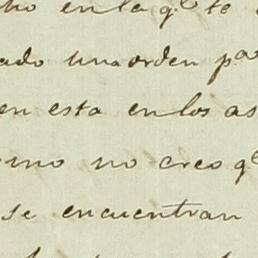 en la q.^e te
ado una orden p^a
en esta en los as
mo no creo q^e
se encuentran